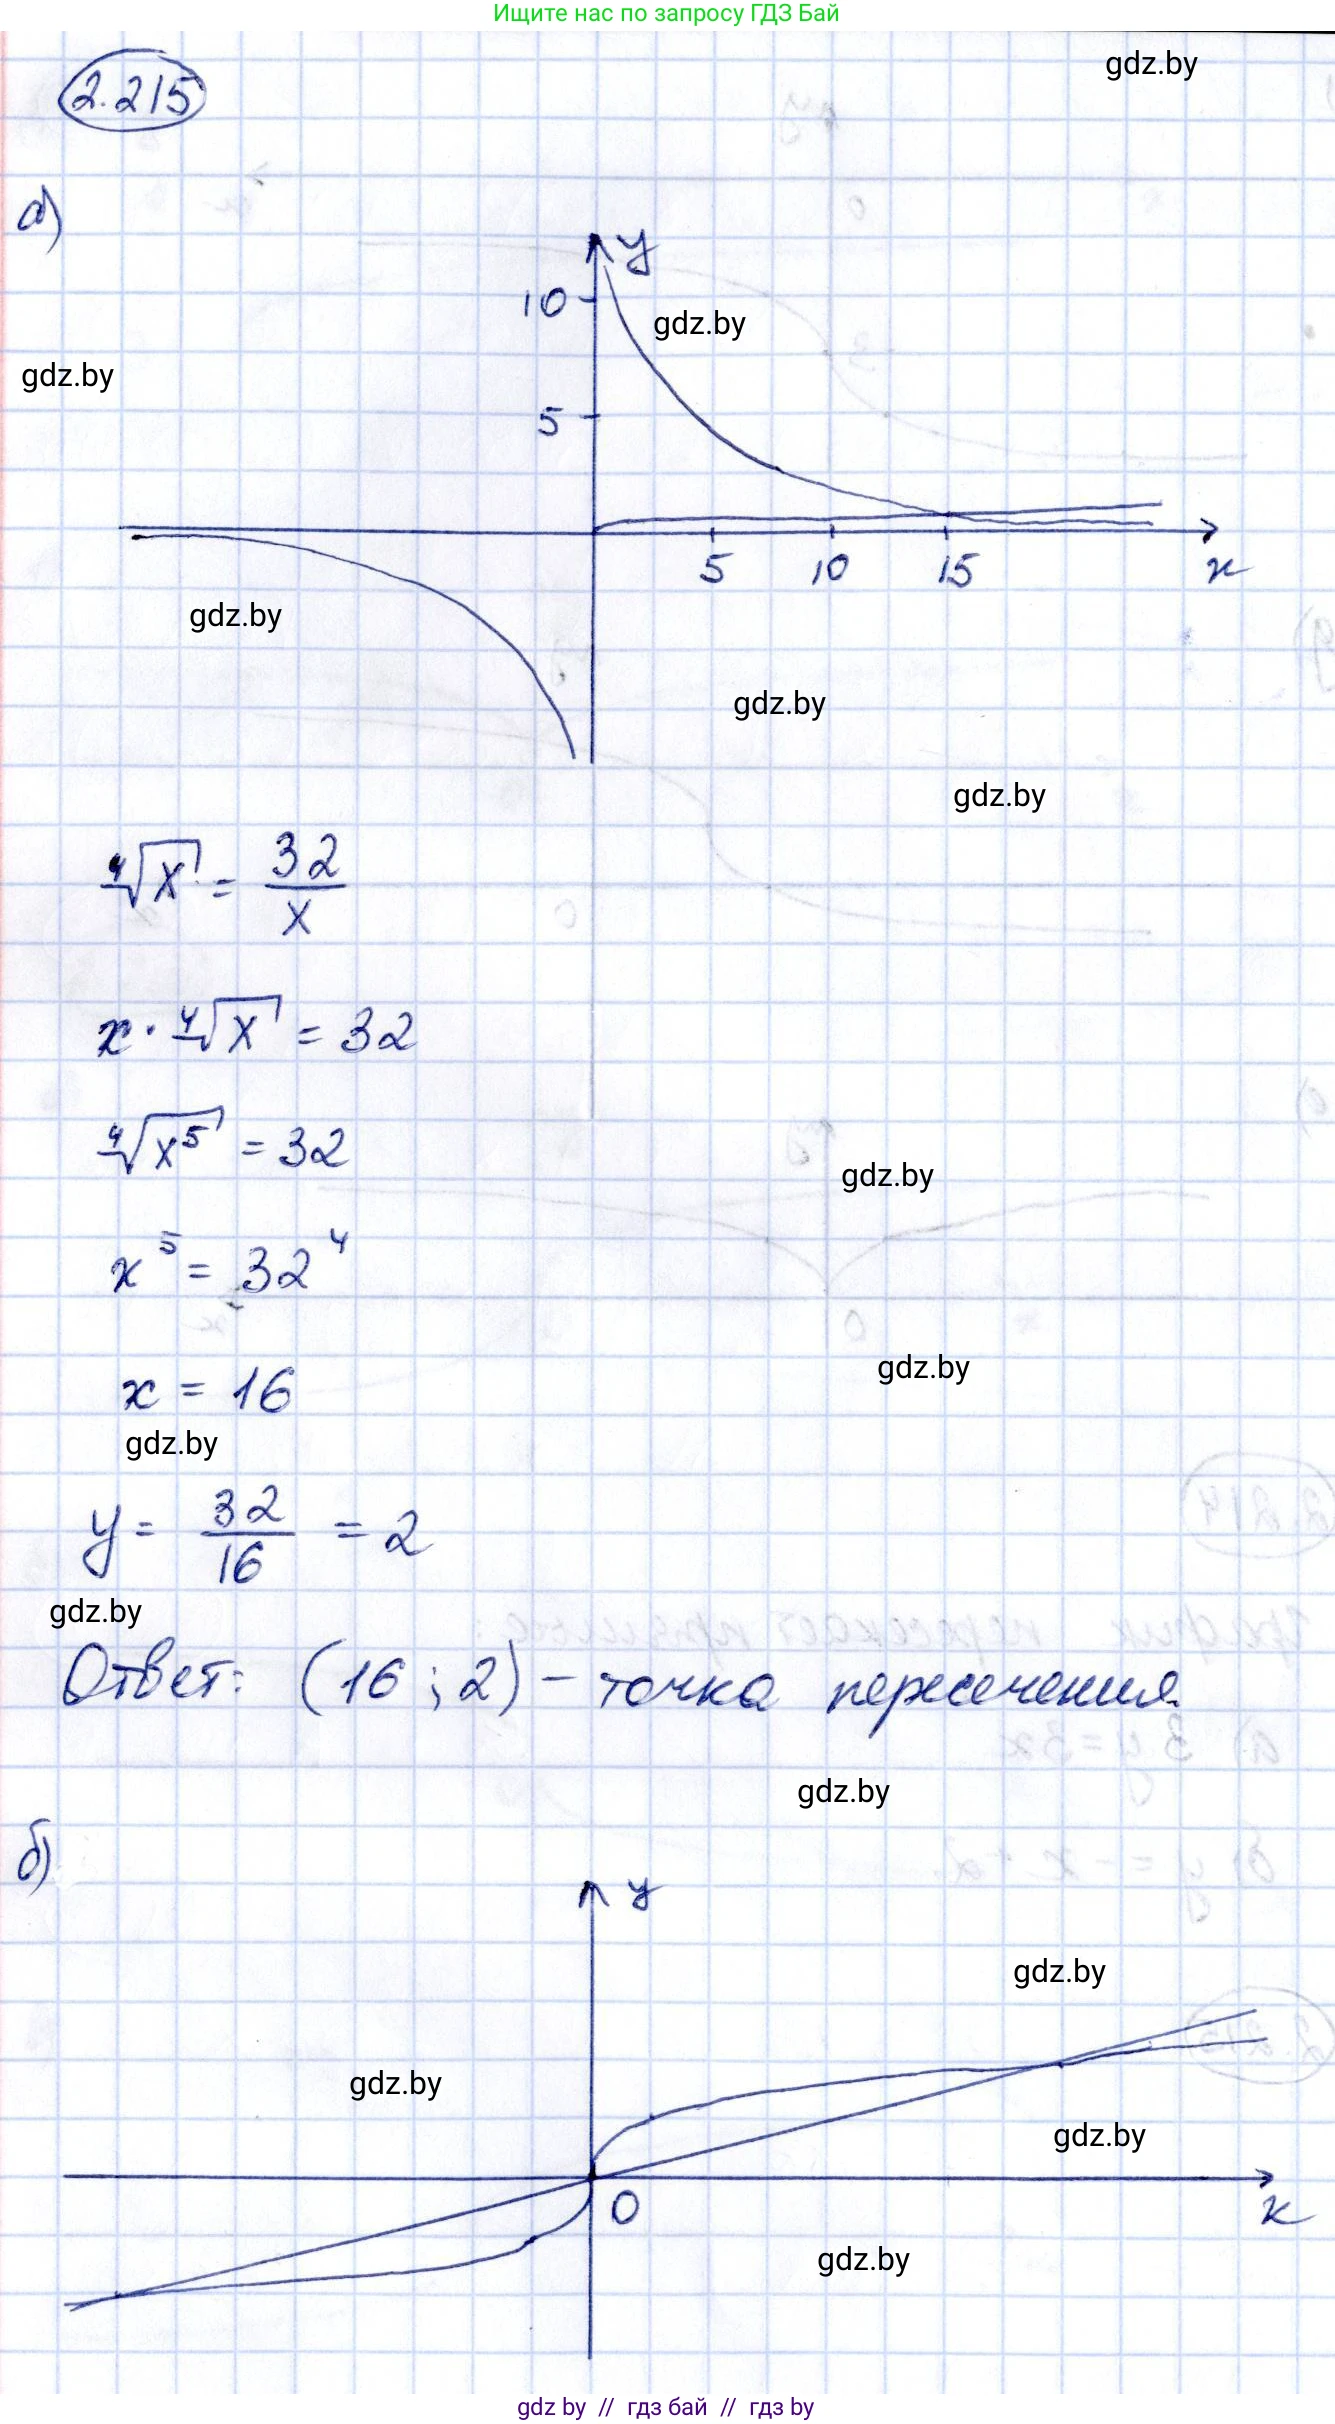 Ищите нас по запросу ГДЗ Бай
gdz.by
2.215
а)
y
10
gdz.by
gdz.by
5
5 10 15
x
gdz.by
gdz.by
gdz.by
⁴√x = 32/x
x · ⁴√x = 32
⁴√x⁵ = 32
gdz.by
x⁵ = 32⁴
gdz.by
x = 16
gdz.by
y = 32/16 = 2
gdz.by
Ответ: (16 ; 2) – точка пересечения.
gdz.by
б)
y
gdz.by
gdz.by
gdz.by
0
x
gdz.by
gdz by // гдз бай // гдз by